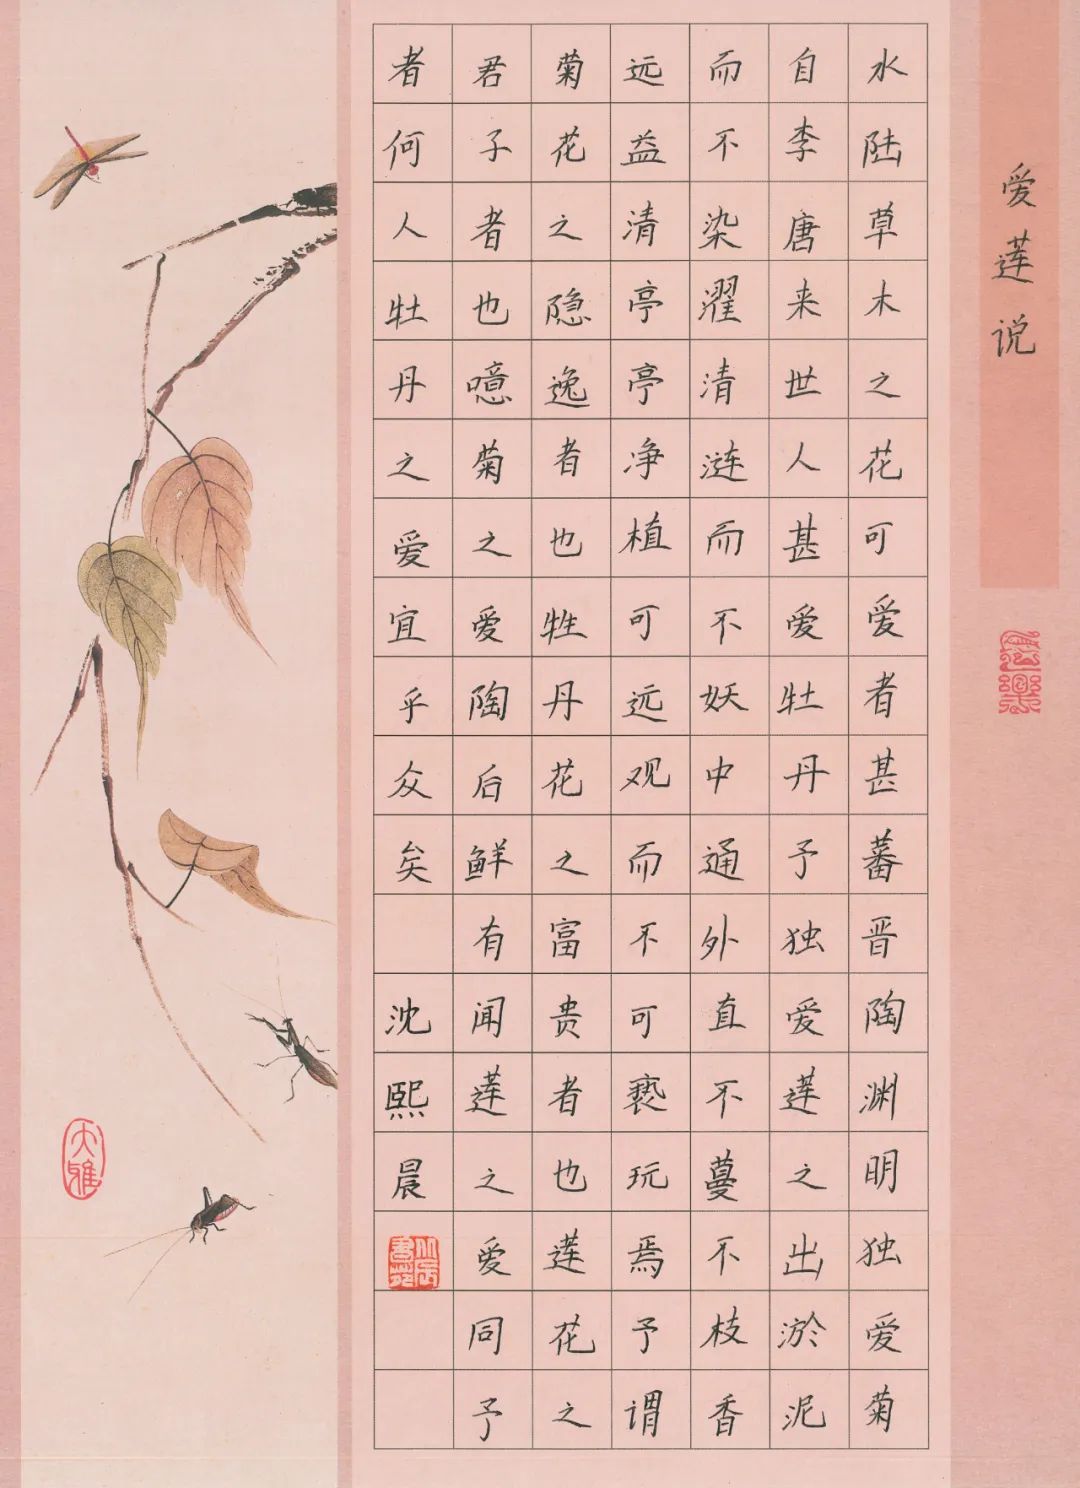 爱莲说
水陆草木之花可爱者甚蕃晋陶渊明独爱菊
自李唐来世人甚爱牡丹予独爱莲之出淤泥
而不染濯清涟而不妖中通外直不蔓不枝香
远益清亭亭净植可远观而不可亵玩焉予谓
菊花之隐逸者也牲丹花之富贵者也莲花之
君子者也噫菊之爱陶后鲜有闻莲之爱同予
者何人牡丹之爱宜乎众矣
沈熙晨
大雅